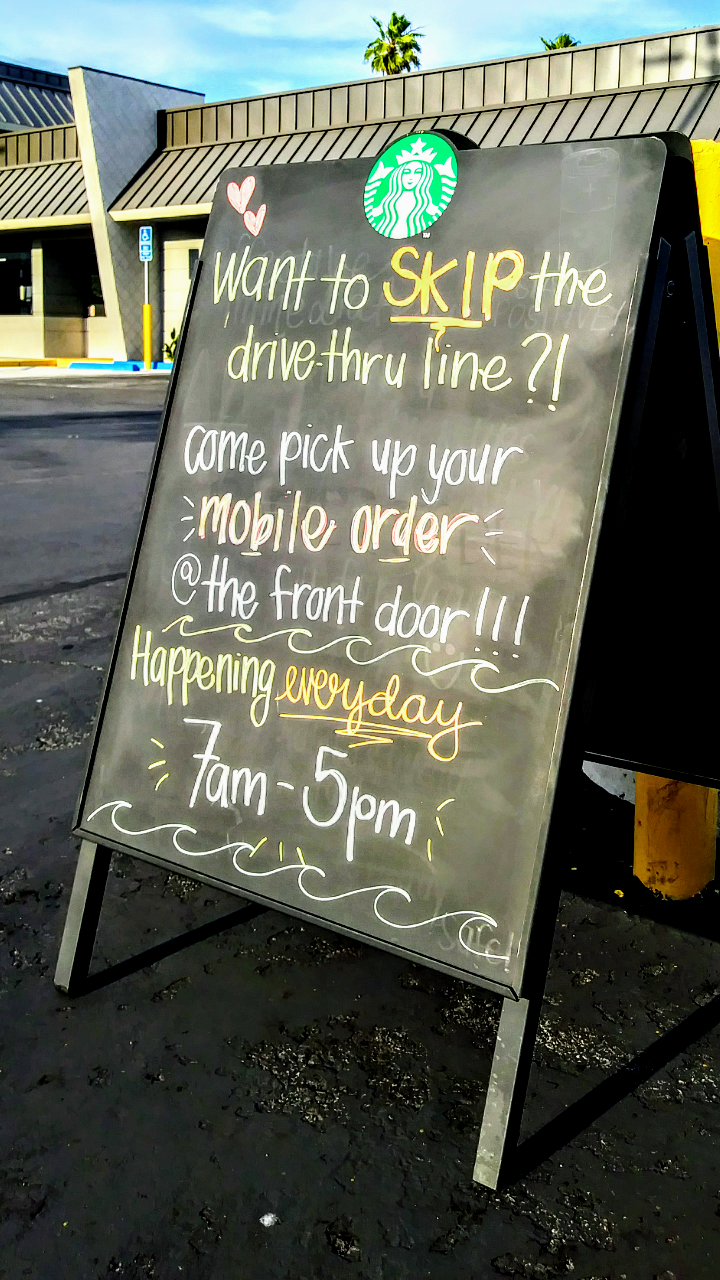 Want to SKIP the
drive-thru line?!
come pick up your
mobile order
@the front door!!!
Happening everyday
7am-5pm